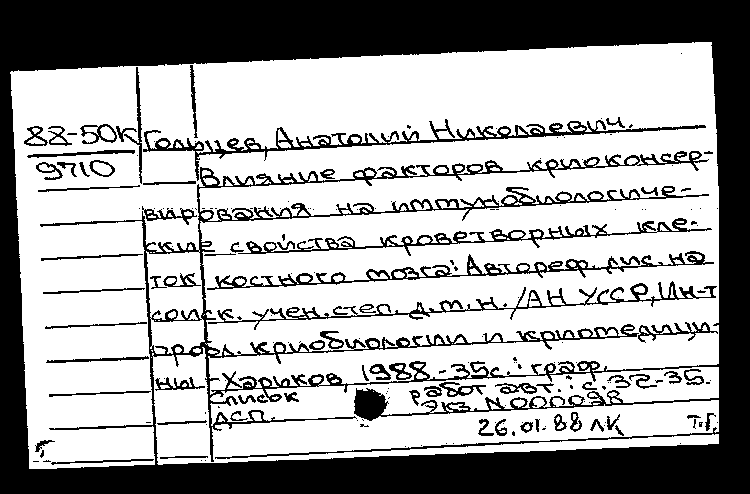 88-50К Гольцев, Анатолий Николаевич.
9710
Влияние факторов криоконсер-
вирования на иммунобиологиче-
ские свойства кроветворных кле-
ток костного мозга: Автореф. дис. на
соиск. учен. степ. д.м.н. /АН УССР, Ин-т
пробл. криобиологии и криомедици-
ны. - Харьков, 1988.-35с.: граф.
Список работ авт.: с. 32-35.
ДСП. Экз. N000098
26.01.88 ЛК Т.Г.
Т